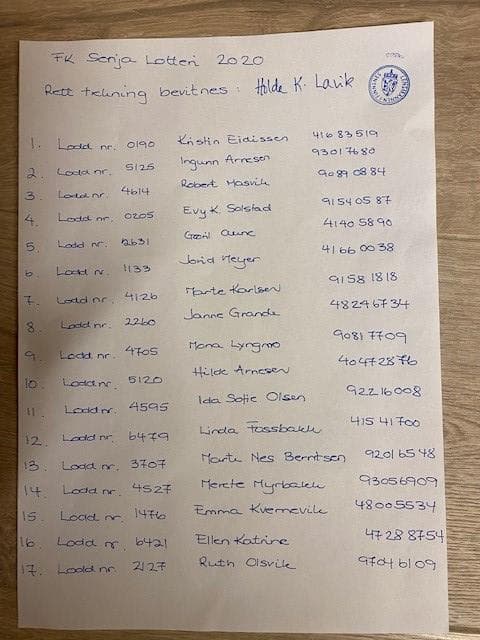 FK Senja Lotteri 2020
Rett trekning bevitnes: Hilde K. Lavik
1. Lodd nr. 0190 Kristin Eidissen 41683519
2. Lodd nr. 5125 Ingunn Arnesen 93017680
3. Lodd nr. 4614 Robert Masvik 90890884
4. Lodd nr. 0205 Evy K. Solstad 91540587
5. Lodd nr. 2631 Aune 41405890
6. Lodd nr. 1133 Jorid Meyer 41660038
7. Lodd nr. 4126 Marte Karlsen 91581818
8. Lodd nr. 2260 Janne Grande 48296734
9. Lodd nr. 4705 Mona Lyngmo 90817709
10. Lodd nr. 5120 Hilde Arnesen 40472876
11. Lodd nr. 4595 Ida Sofie Olsen 92216008
12. Lodd nr. 6479 Linda Fossbakk 41541700
13. Lodd nr. 3707 Marte Nes Berntsen 92016548
14. Lodd nr. 4527 Merete Myrbakk 93056909
15. Lodd nr. 1476 Emma Kvernevik 48005534
16. Lodd nr. 6421 Ellen Katrine 47288754
17. Lodd nr. 2127 Ruth Olsvik 97046109